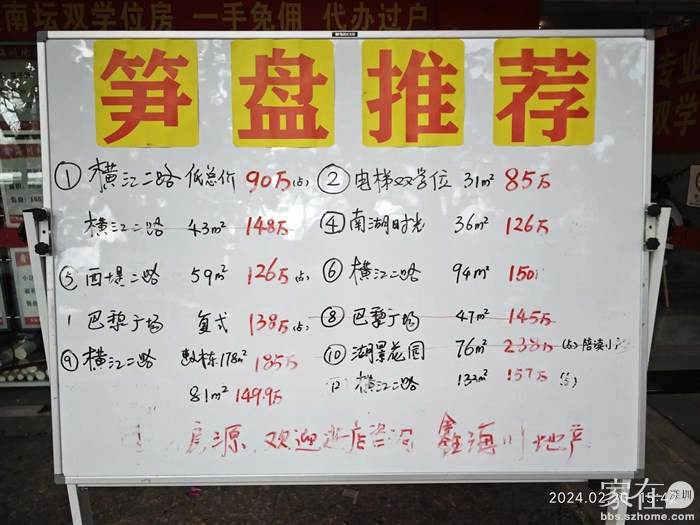 南坛双学位房 一手免佣 代办过户
笋盘推荐
① 横江二路 低总价 90万(占) ② 电梯双学位 31m² 85万
横江二路 43m² 148万 ④ 南湖时光 36m² 126万
⑤ 西堤二路 59m² 126万(占) ⑥ 横江二路 94m² 150
1 巴黎广场 复式 138万(占) ⑧ 巴黎广场 47m² 145万
⑨ 横江二路 178m² 185万 ⑩ 湖景花园 76m² 238万 (占)陪读小
81m² 149.9万 12 横江二路 132m² 157万
房源,欢迎进店咨询 鑫海川地产
2024.02.20 15:44
家在深圳
bbs.szhome.com